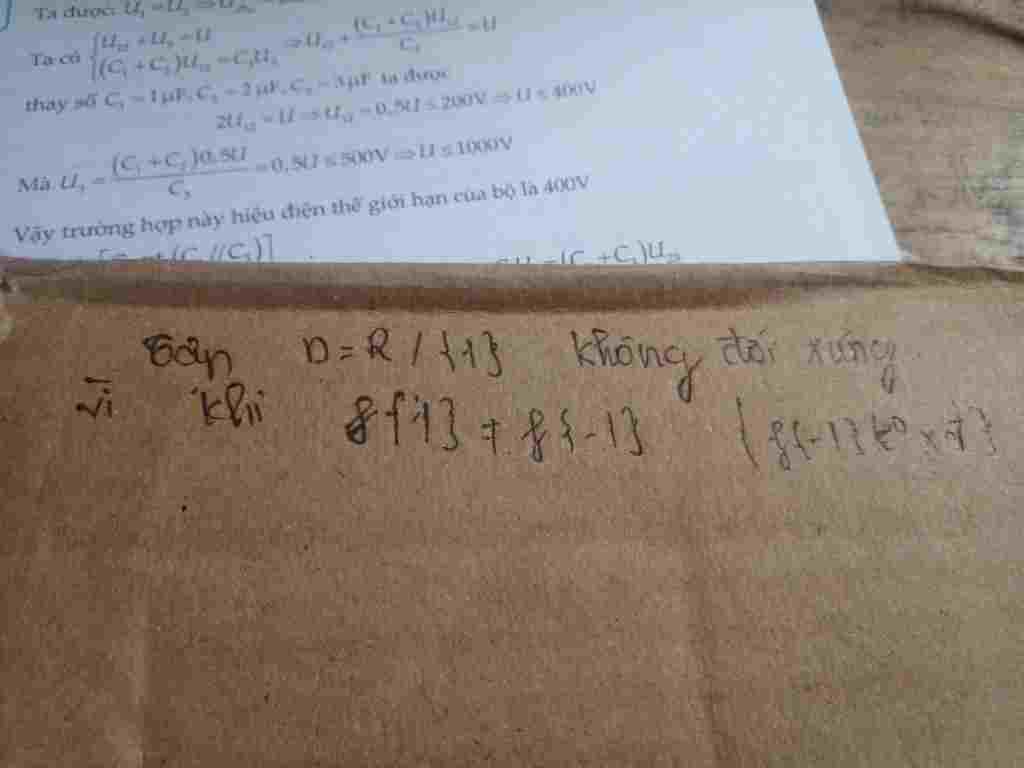 Ta được: U₁ = U₂ ⇒
Ta có {U₁₂ + U₃ = U ⇒ U₁₂ + (C₁ + C₂)U₁₂ / C₃ = U
(C₁ + C₂)U₁₂ = C₃U₃
thay số C₁ = 1μF, C₂ = 2μF, C₃ = 3μF ta được
2U₁₂ = U ⇒ U₁₂ = 0,5U ≤ 200V ⇒ U ≤ 400V
Mà U₃ = (C₁ + C₂)0,5U / C₃ = 0,5U ≤ 500V ⇒ U ≤ 1000V
Vậy trường hợp này hiệu điện thế giới hạn của bộ là 400V
D = R / {1} không đối xứng
vì khi f{1} ≠ f{-1}